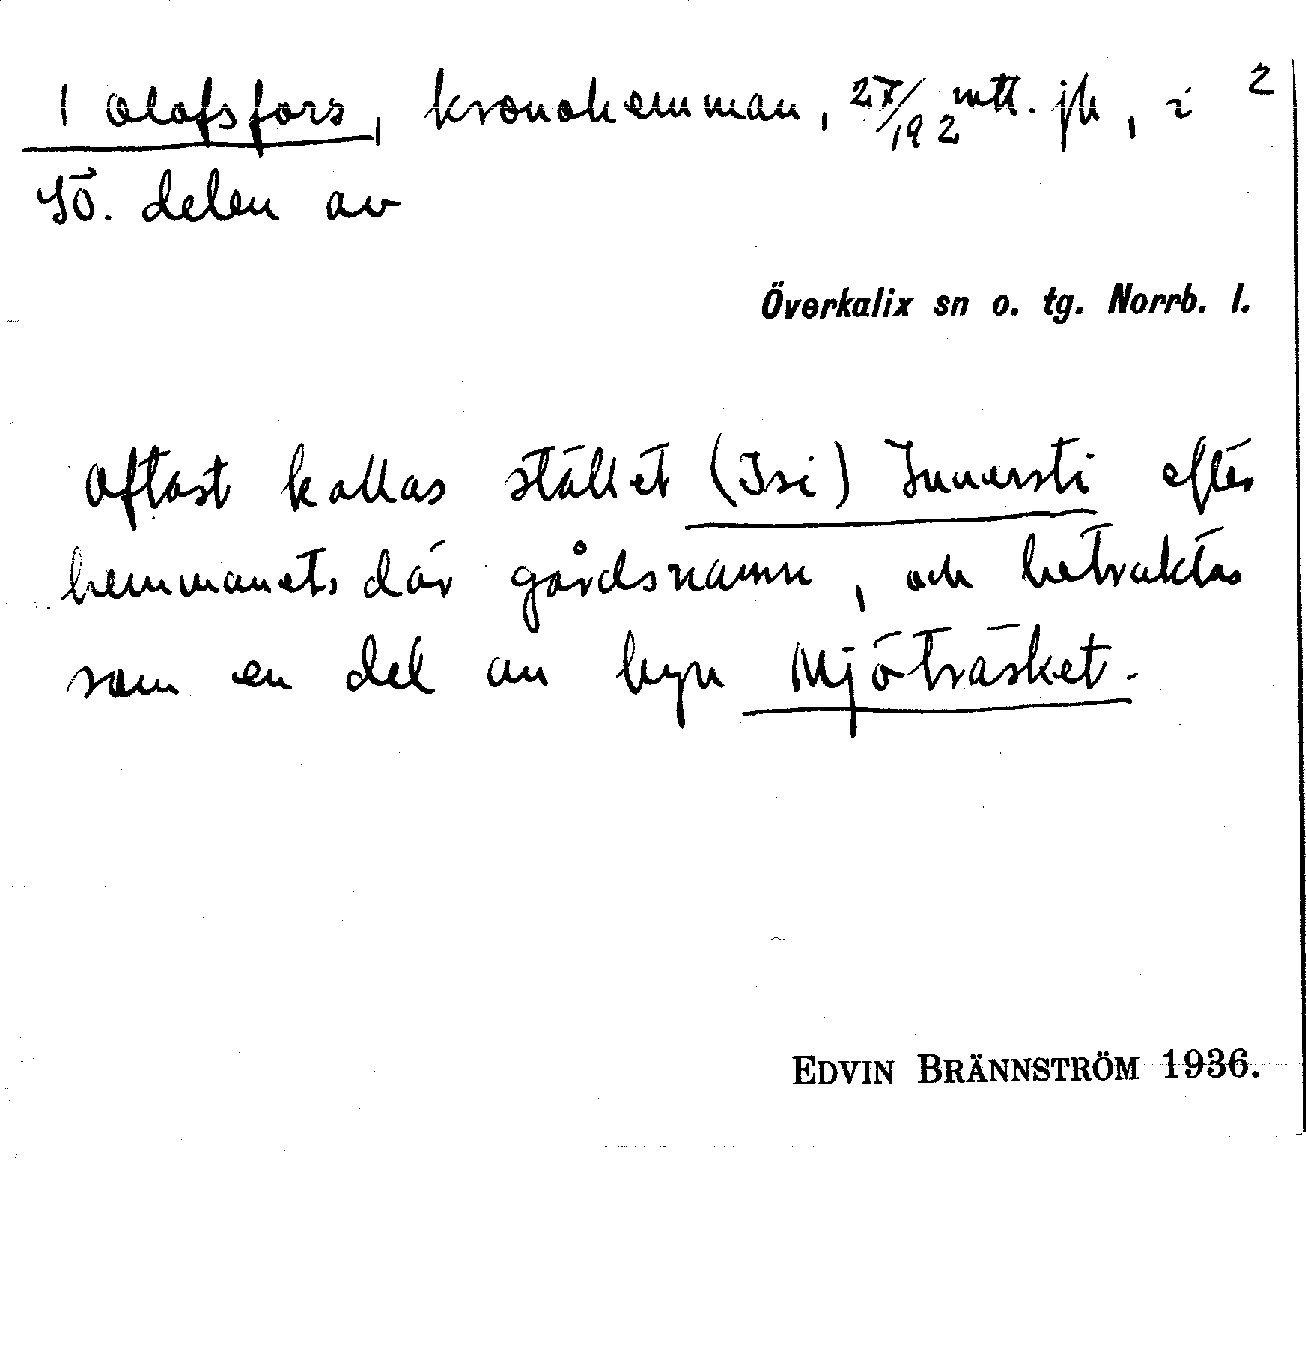 1 Olofsfors, kronohemman, 27/192 mtl. jb, i 2
SÖ. delen av
Överkalix sn o. tg. Norrb. l.
Oftast kallas stället (Isi) Innersti efter
hemmanets där gårdsnamn, och betraktas
som en del av byn Mjöträsket.
EDVIN BRÄNNSTRÖM 1936.